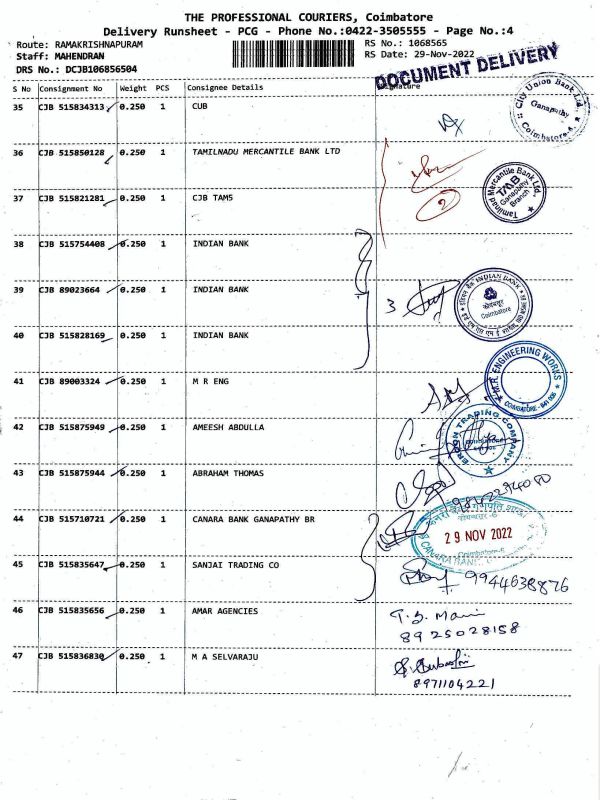 THE PROFESSIONAL COURIERS, Coimbatore
Delivery Runsheet - PCG - Phone No.:0422-3505555 - Page No.:4
Route: RAMAKRISHNAPURAM
RS No.: 1068565
Staff: MAHENDRAN
RS Date: 29-Nov-2022
DRS No.: DCJB106856504
DOCUMENT DELIVERY
S No Consignment No Weight PCS Consignee Details Signature
35 CJB 515834313 0.250 1 CUB
City Union Bank Ltd.
Ganapathy
Coimbatore-6.
36 CJB 515850128 0.250 1 TAMILNADU MERCANTILE BANK LTD
Tamilnad Mercantile Bank Ltd.
TMB
Ganapathy
Branch
37 CJB 515821281 0.250 1 CJB TAM5
2
38 CJB 515754408 0.250 1 INDIAN BANK
39 CJB 89023664 0.250 1 INDIAN BANK
3
INDIAN BANK
Coimbatore
40 CJB 515828169 0.250 1 INDIAN BANK
41 CJB 89003324 0.250 1 M R ENG
M.R. ENGINEERING WORKS
COIMBATORE - 641 006
42 CJB 515875949 0.250 1 AMEESH ABDULLA
TRADING COMPANY
43 CJB 515875944 0.250 1 ABRAHAM THOMAS
44 CJB 515710721 0.250 1 CANARA BANK GANAPATHY BR
29 NOV 2022
CANARA BANK
Coimbatore-6
45 CJB 515835647 0.250 1 SANJAI TRADING CO
9944638876
46 CJB 515835656 0.250 1 AMAR AGENCIES
T. S. Mani
8925028158
47 CJB 515836830 0.250 1 M A SELVARAJU
8971104221